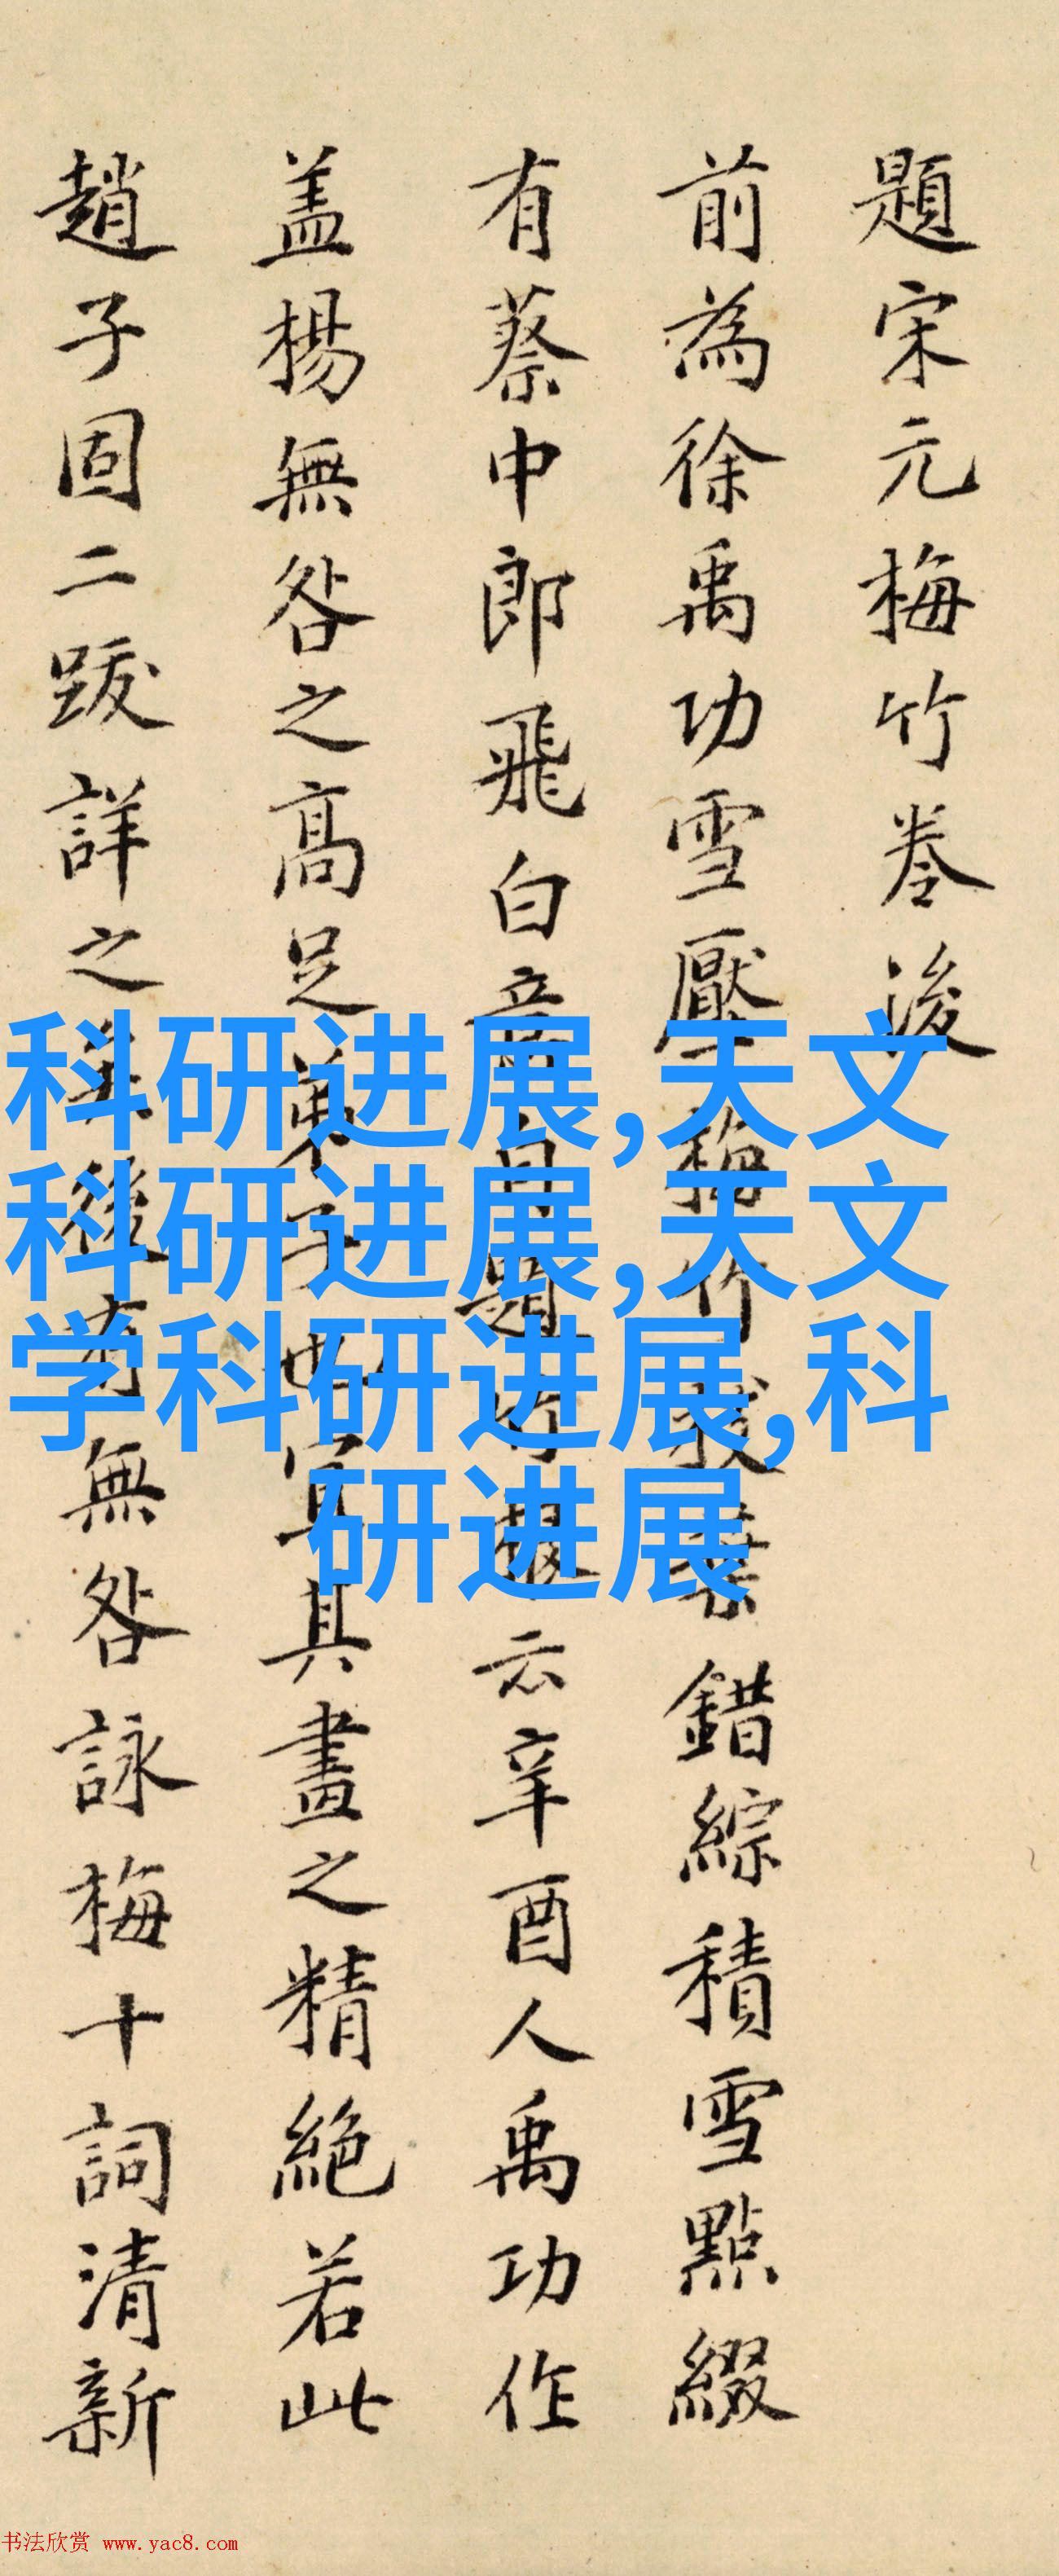 題宋元梅竹卷後
前為徐禹功雪壓梅竹枝葉錯綜積雪點綴
有蔡中郎飛白意自題竹云辛酉人禹功作
盖楊無咎之高足弟子也宜其畫之精絶若此
趙子固二跋詳之矣後有無咎詠梅十詞清新
科研进展,天文
科研进展,天文
学科研进展,科
研进展
书法欣赏 www.yac8.com